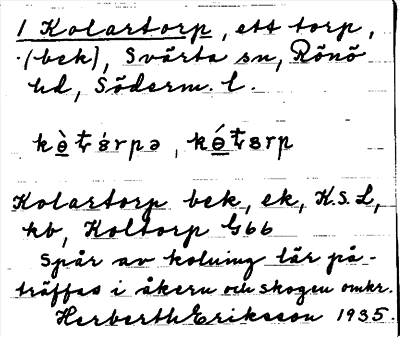 1 Kolartorp, ett torp,
(bek), Svärta sn, Rönö
hd, Söderm. l.
Kolartorp bek, ek, K.S.L,
kb, Koltorp G66
Spår av kolning lär på-
träffas i åkern och skogen omkr.
Herberth Eriksson 1935.